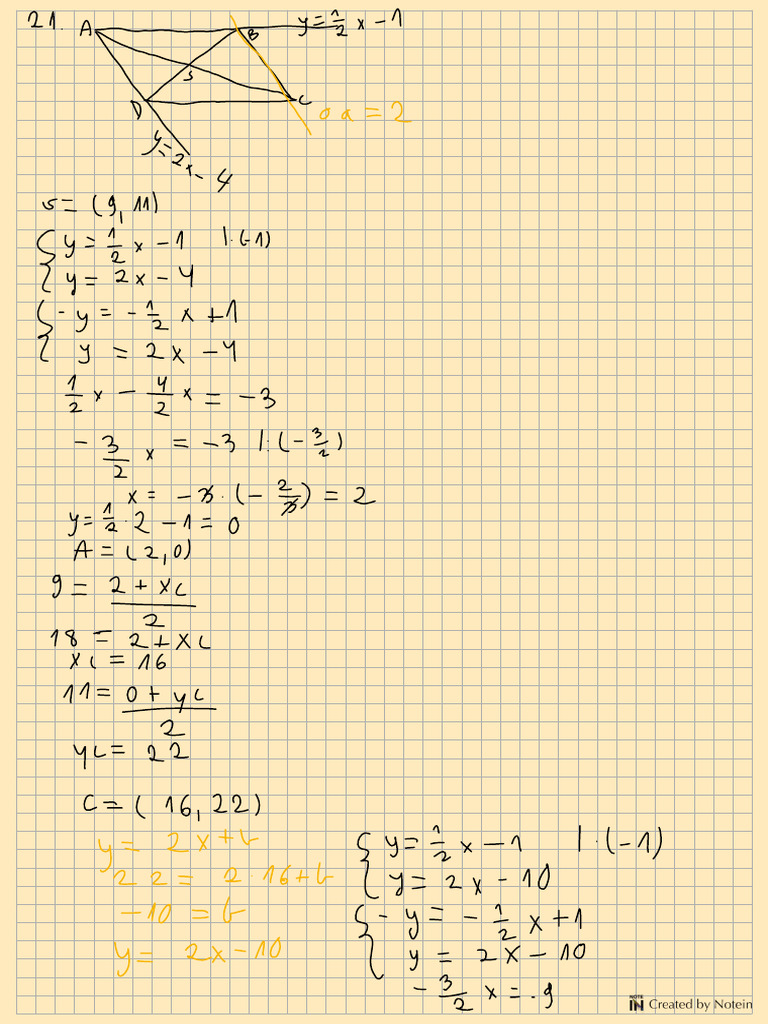 21. A B y = 1/2 x - 1
S
D C a = 2
y = 2x - 4
S = (9, 11)
{ y = 1/2 x - 1 |·(-1)
{ y = 2x - 4
{ -y = -1/2 x + 1
{ y = 2x - 4
1/2 x - 4/2 x = -3
-3/2 x = -3 |:(-3/2)
x = -3·(-2/3) = 2
y = 1/2·2 - 1 = 0
A = (2, 0)
9 = (2 + xc)/2
18 = 2 + xc
xc = 16
11 = (0 + yc)/2
yc = 22
C = (16, 22)
y = 2x + b
22 = 2·16 + b
-10 = b
y = 2x - 10
{ y = 1/2 x - 1 |·(-1)
{ y = 2x - 10
{ -y = -1/2 x + 1
{ y = 2x - 10
-3/2 x = -9
NOTE IN Created by Notein